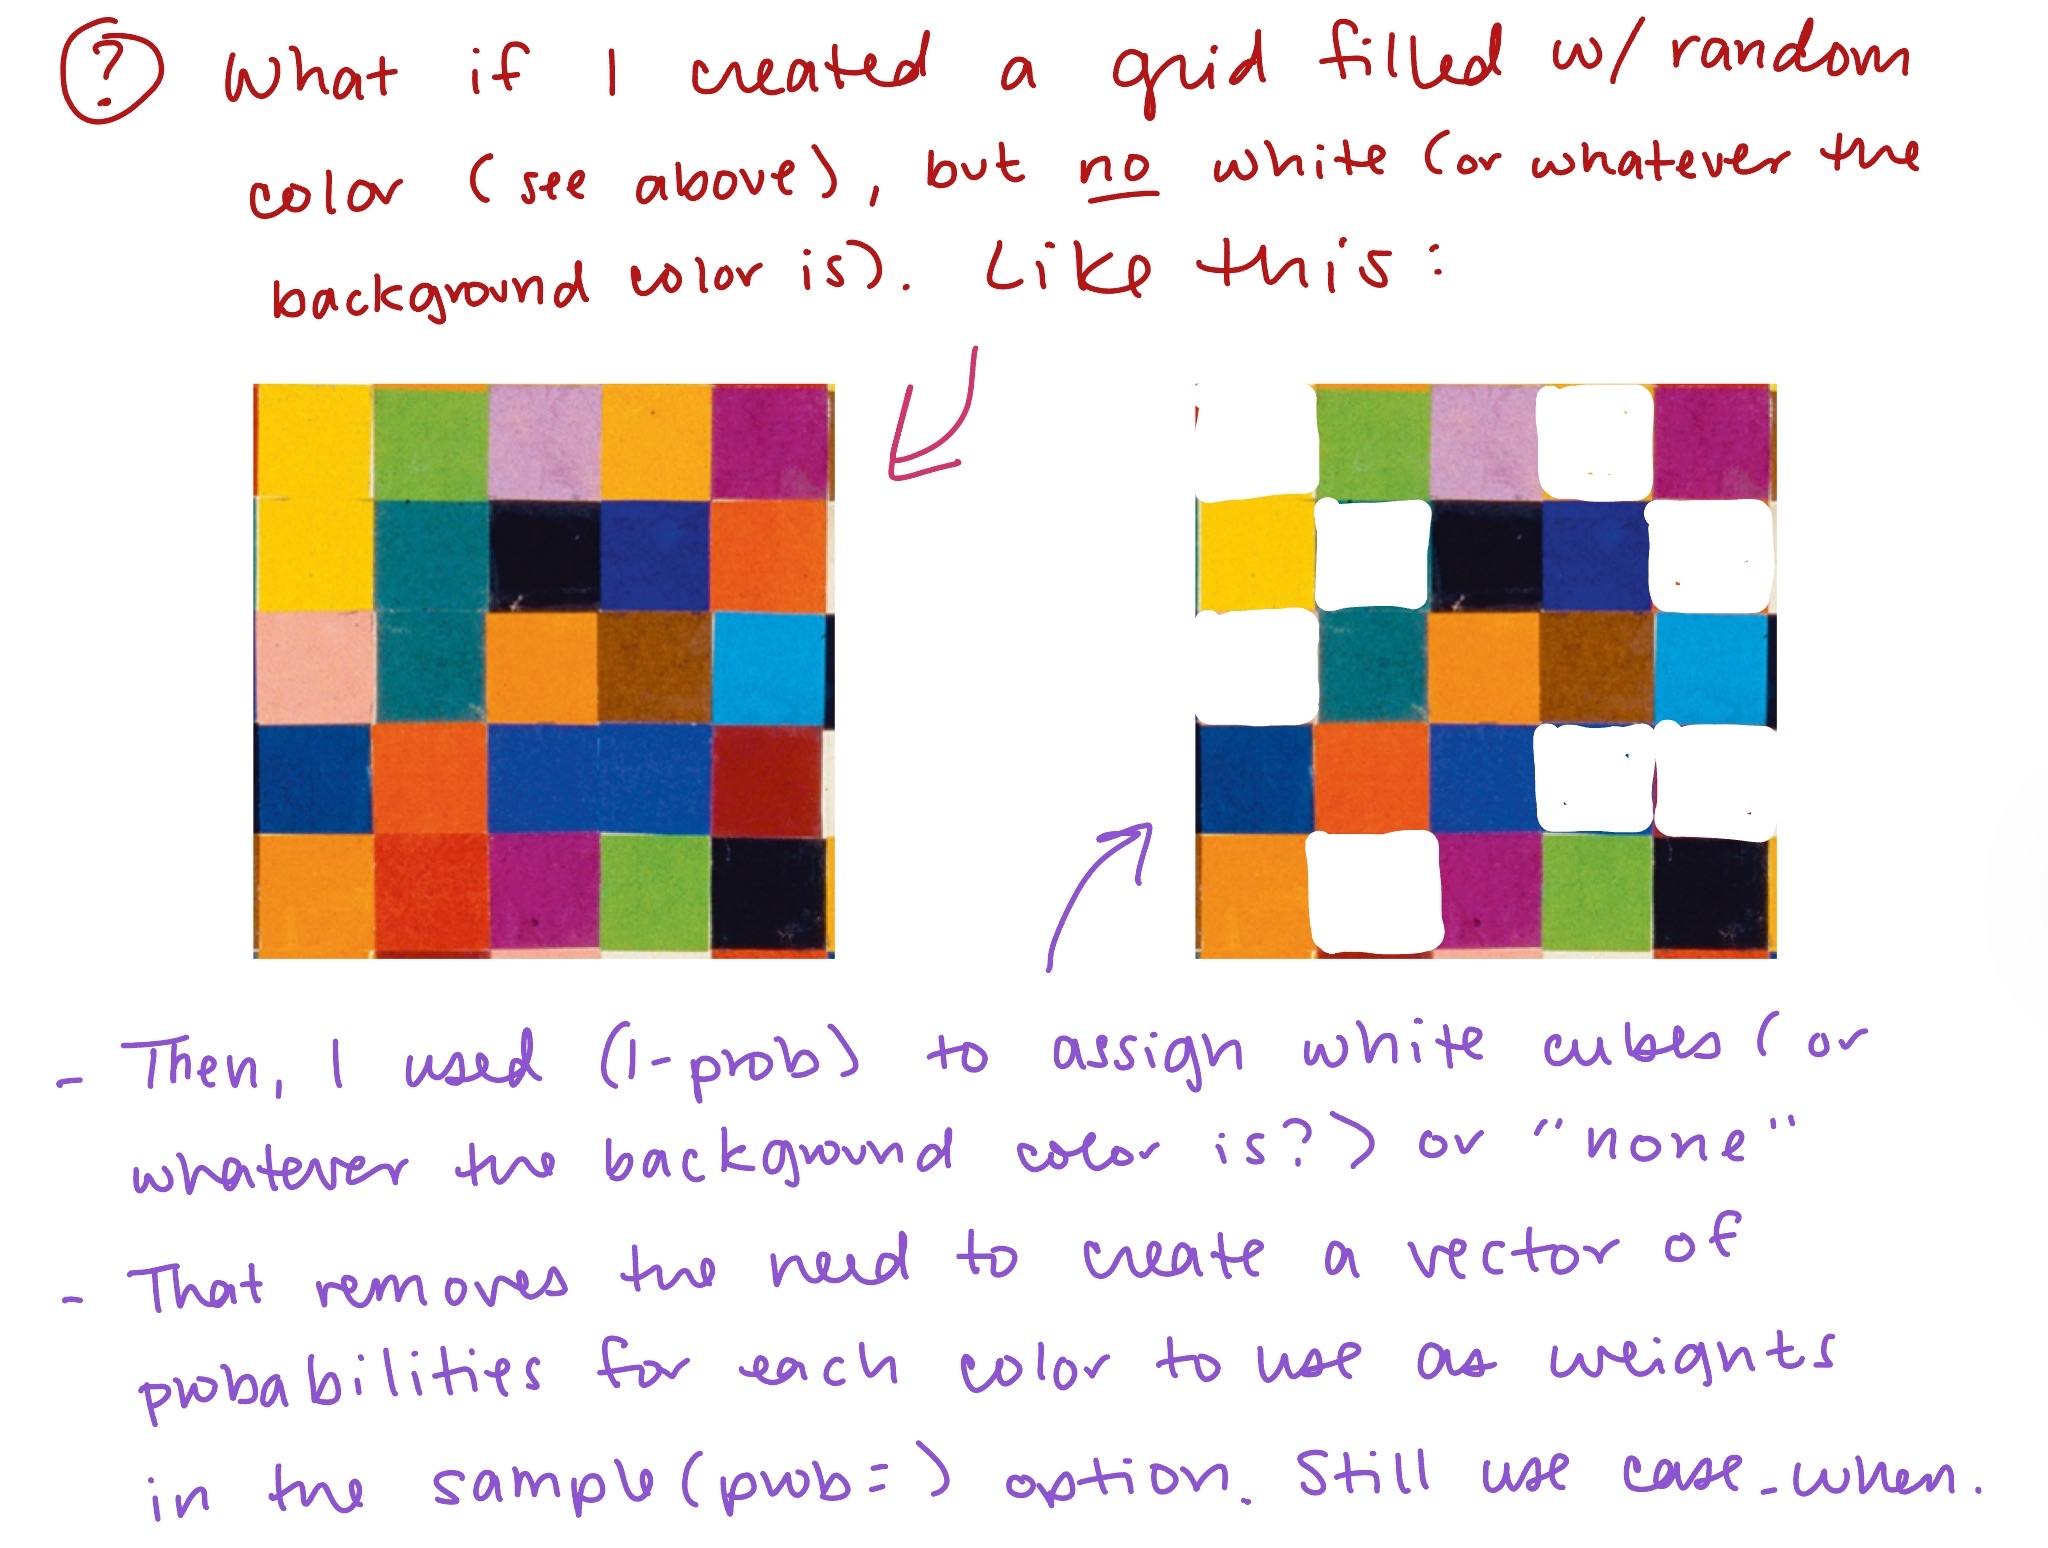 ? What if I created a grid filled w/ random
color (see above), but no white (or whatever the
background color is). Like this:
- Then, I used (1-prob) to assign white cubes (or
whatever the background color is?) or "none"
- That removes the need to create a vector of
probabilities for each color to use as weights
in the sample(prob= ) option. Still use case_when.